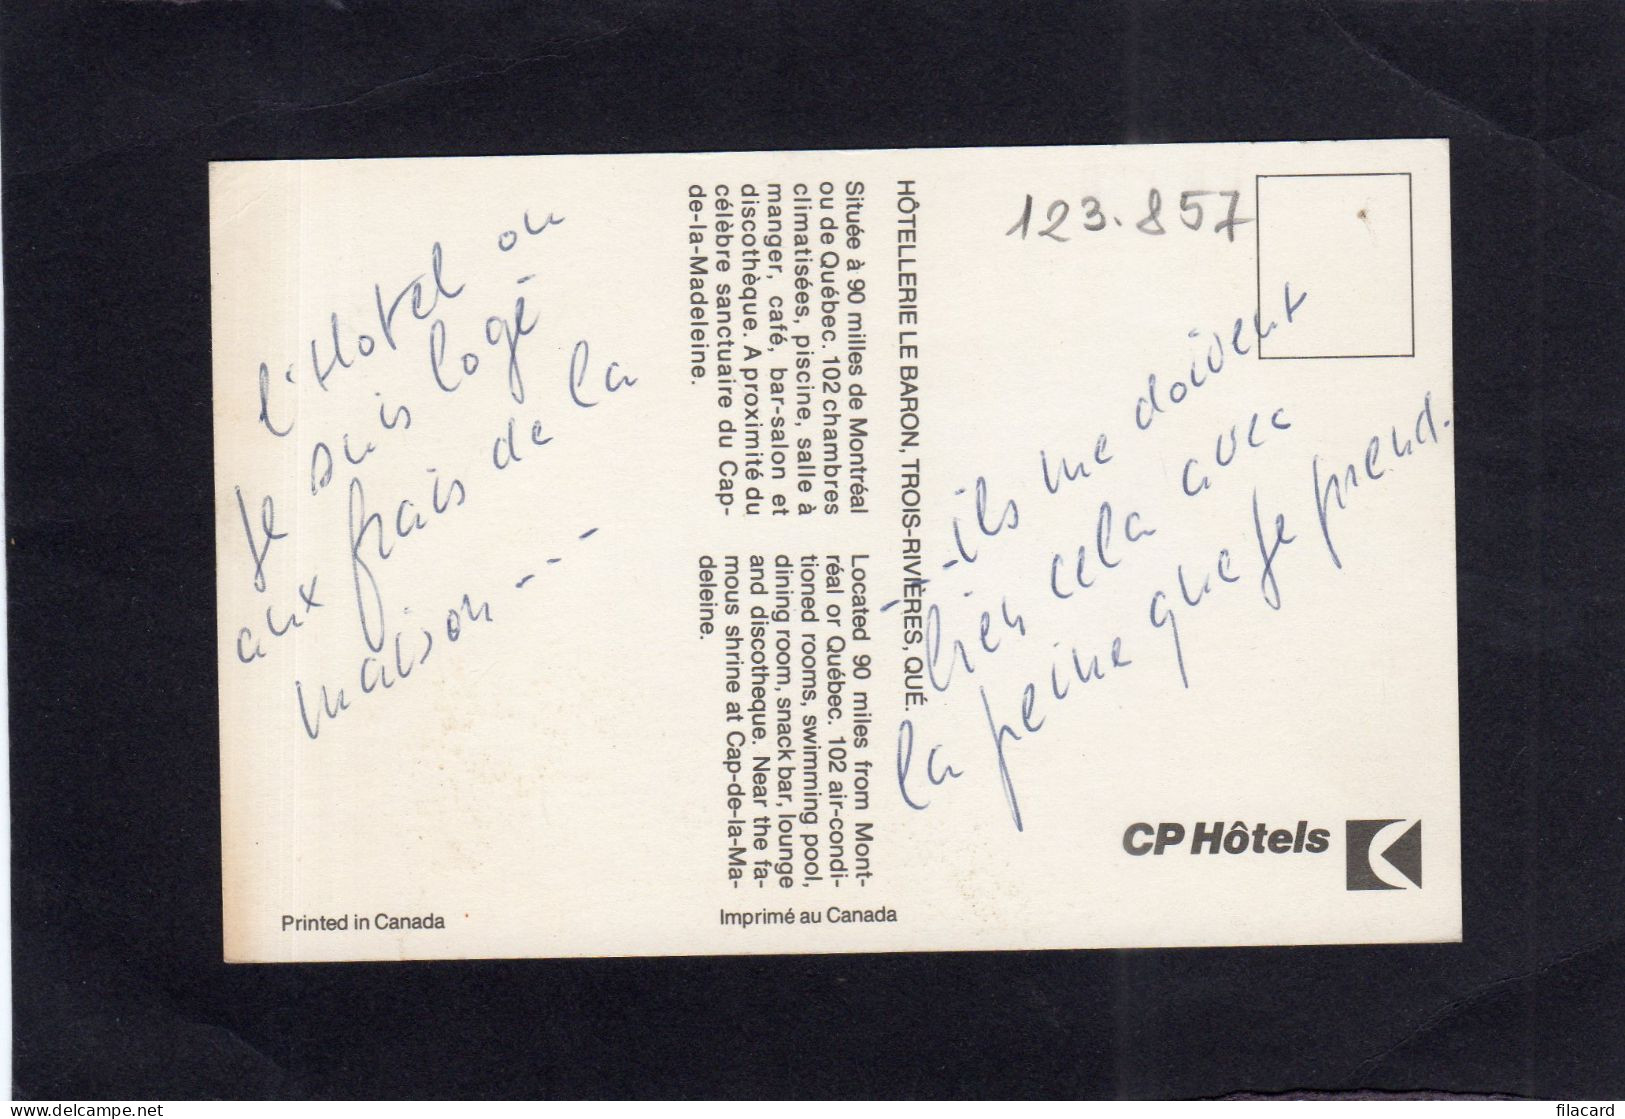 l'Hotel ou
Je suis logé
aux frais de la
maison - - -
HÔTELLERIE LE BARON, TROIS-RIVIÈRES, QUÉ.
Située à 90 milles de Montréal
ou de Québec. 102 chambres
climatisées, piscine, salle à
manger, café, bar-salon et
discothèque. A proximité du
célèbre sanctuaire du Cap-
de-la-Madeleine.
Located 90 miles from Mont-
réal or Québec. 102 air-condi-
tioned rooms, swimming pool,
dining room, snack bar, lounge
and discotheque. Near the fa-
mous shrine at Cap-de-la-Ma-
deleine.
123.857
- ils me doivent
bien cela avec
la peine que je prend.
CP Hôtels
Printed in Canada
Imprimé au Canada
filacard
https://www.delcampe.net